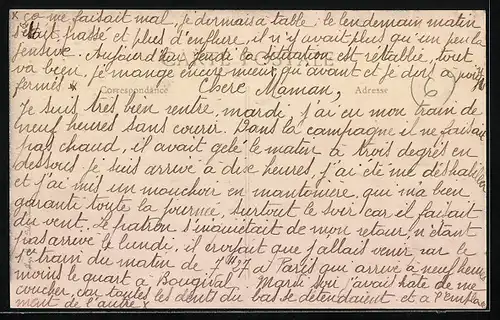 x ça me faisait mal, je dormais à table. le lendemain matin
c'était passé et plus d'enflure, il n'y avait plus qu'un peu la
gencive. Aujourd'hui jeudi la situation est rétablie, tout
va bien, je mange encore mieux qu'avant et je dors à poings
fermés x
CARTE POSTALE
Correspondance
Adresse
6
Chère Maman,
Je suis très bien rentré, mardi j'ai eu mon train de
neuf heures sans courir. Dans la campagne il ne faisait
pas chaud, il avait gelé le matin à trois degrés en
dessous je suis arrivé à dix heures, j'ai été me déshabiller
et j'ai mis un mouchoir en mentonnière, qui m'a bien
garanti toute la journée, surtout le soir car il faisait
du vent. Le patron s'inquiétait de mon retour, n'étant
pas arrivé le lundi, il croyait que j'allais venir par le
1er train du matin de 7H37 à Paris qui arrive à neuf heures
moins le quart à Bougival. Mardi soir j'avais hâte de me
coucher, car toutes les dents du bas se détendaient et à l'empla-
ment de l'autre x